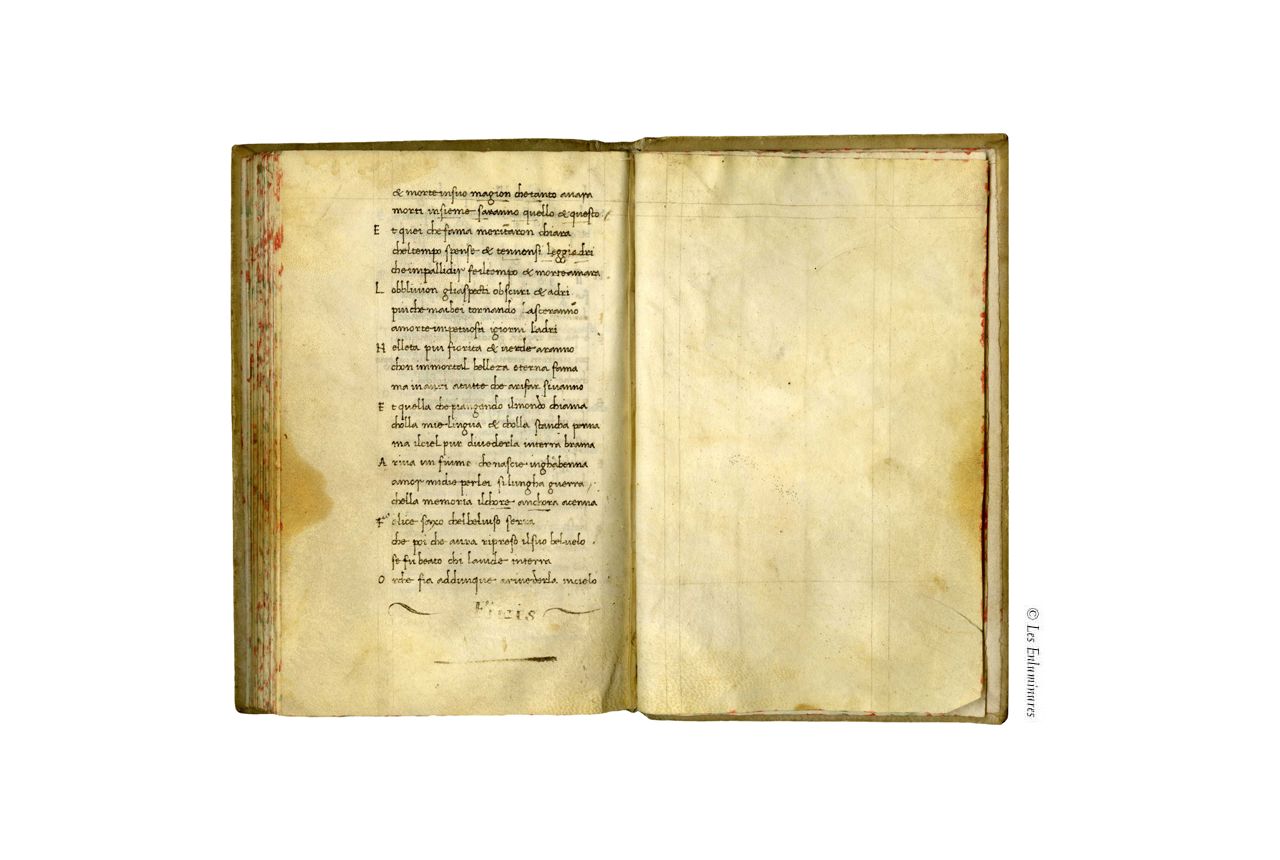 & morte in suo magion che tanto avara
morti insieme saranno quello & questo
E t quei che fama meritaron chiara
chel tempo spense & tennonsi leggiadri
che impallidir fe il tempo & morte amara
L obblivion gli aspecti obscuri & adri
piu che mai bei tornando lasceranno
a morte impetuosi i giorni ladri
N elleta piu fiorita & verde aranno
chon immortal belleza eterna fama
ma inanzi a tutte che a rifar si vanno
E t quella che piangendo il mondo chiama
cholla mie lingua & cholla stancha penna
ma il ciel pur di vederla interra brama
A riva un fiume che nascie in ghabenna
amor mi die per lei si lungha guerra
chella memoria il chore anchora acenna
F elice saxo chel bel viso serra
che poi che avra ripreso il suo bel velo
se fu beato chi la vide interra
O r che fia addunque a rivederla in cielo
Finis
© Les Enluminures